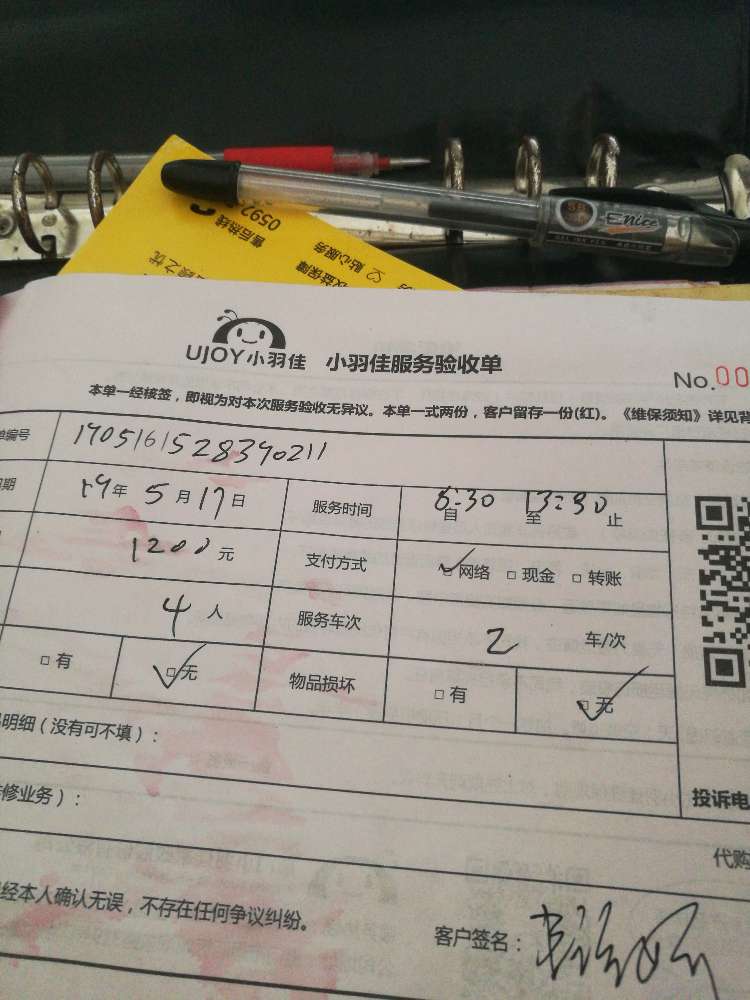 Enice
0592
售后热线
贴心服务
益保障
之忧
UJOY小羽佳 小羽佳服务验收单
No.00
本单一经核签，即视为对本次服务验收无异议。本单一式两份，客户留存一份(红)。《维保须知》详见背
单编号 1905161528390211
期 19年 5月17日 服务时间 自 8:30 至 13:30 止
1200元 支付方式 网络 现金 转账
4人 服务车次 2 车/次
有 无 物品损坏 有 无
明细（没有可不填）：
修业务）：
投诉电
代购
经本人确认无误，不存在任何争议纠纷。
客户签名：